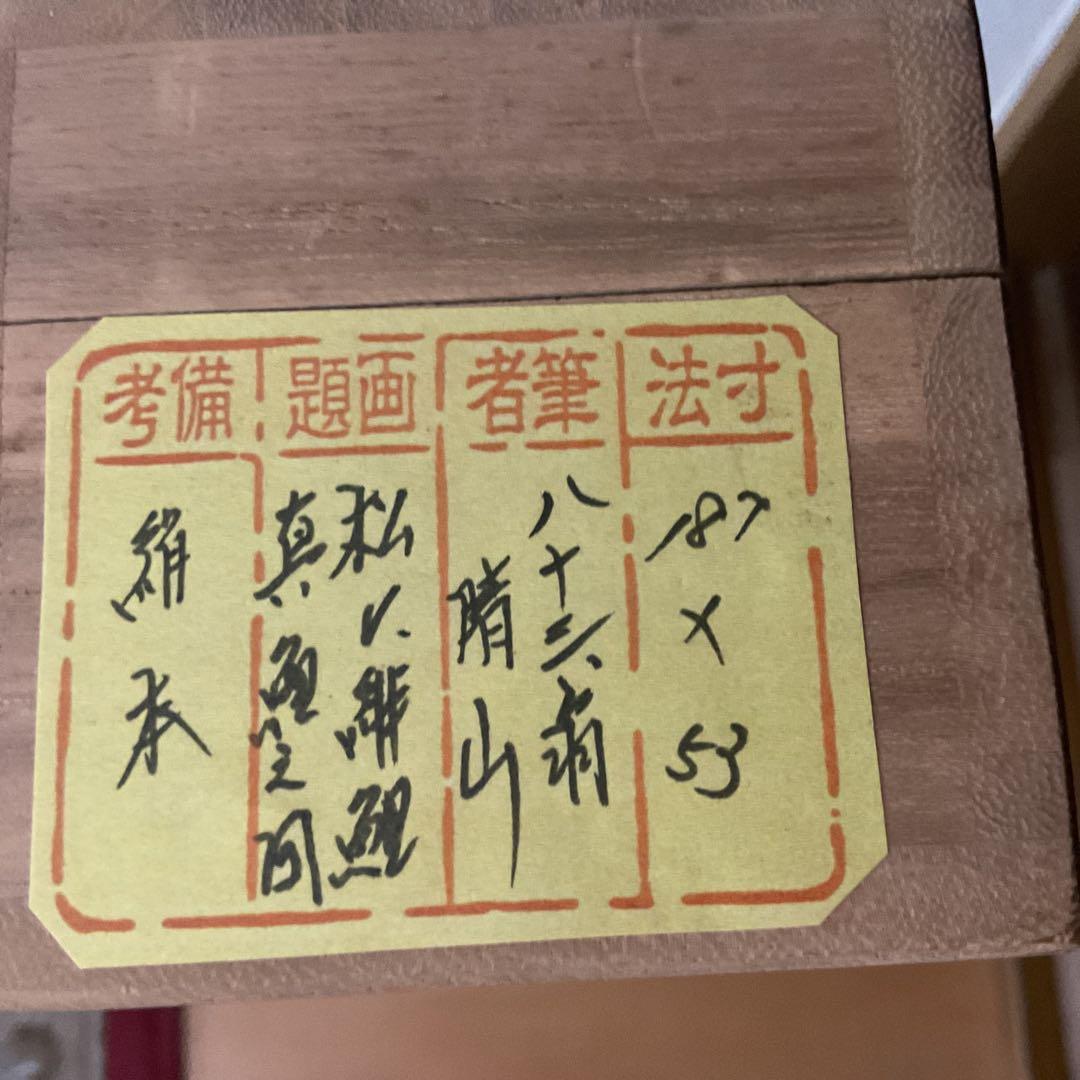 寸法
187
×
53
筆者
八十 翁
晴山
画題
松に緋鯉
真鯉之図
備考
絹本